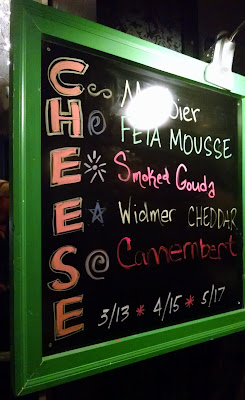 CHEESE
FETA MOUSSE
Smoked Gouda
Widmer CHEDDAR
Camembert
3/13 * 4/15 * 5/17